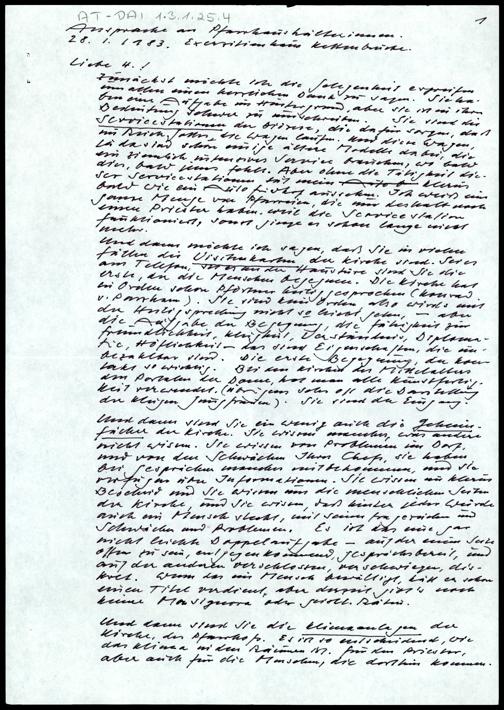 AT-DAI 1.3.1.25.4
1
Ansprache an Pfarrhaushälterinnen.
28.1.1983. Exerzitienhaus
Liebe H.!
Zunächst möchte ich die Gelegenheit ergreifen
um allen einen herzlichen Dank zu sagen. Sie ha-
ben eine Aufgabe im Hintergrund, aber sie ist in ihrer
Bedeutung schwer zu umschreiben. Sie sind die
Servicestationen der Diözese, die dafür sorgen, daß
die Wagen laufen. Und diese Wagen,
ja da sind schon einige ältere Modelle dabei, die
ein ziemlich intensives Service brauchen, wo bald
dies, bald jenes fehlt. Aber ohne die Tätigkeit die-
ser Servicestationen
bald wie ein Autofriedhof ausschauen. Ich weiß eine
ganze Menge von Pfarreien, die nur deshalb noch
einen Priester haben, weil die Servicestation
funktioniert, sonst ginge es schon lange nicht
mehr.
Und dann möchte ich sagen, daß Sie in vielen
Fällen die Visitenkarten der Kirche sind. Sei es
am Telefon, sei es an der Haustüre sind Sie die
erste, der die Menschen begegnen. Die Kirche hat
in Orden schon Pförtner heilig gesprochen (Konrad
v. Parzham). Sie sind also wird's mit
der Heiligsprechung nicht so leicht gehn, – aber
die Aufgabe der Begegnung, die Fähigkeit zur
Freundlichkeit, Klugheit, Verständnis, Diploma-
tie, Höflichkeit – das sind Eigenschaften, die un-
bezahlbar sind. Die erste Begegnung, der Kon-
takt so wichtig. Bei den Kirchen des Mittelalters
den Portalen der Dome, hat man alle Kunstfertig-
keit verwendet. (übrigens sehr oft die Darstellung
der klugen Jungfrauen). Sie sind der Eingang.
Und dann sind Sie ein wenig auch die Geheim-
fächer der Kirche. Sie wissen manches, was andere
nicht wissen. Sie wissen von Problemen im Dorf
und von den Schwächen Ihres Chefs, sie haben
bei Gesprächen manches mitbekommen, und sie
verfügen über Informationen. Sie wissen
Bescheid und Sie wissen um die menschlichen Seiten
der Kirche und Sie wissen, daß hinter jeder Würde
auch ein Mensch steht, mit seinen Fragereien und
Schwächen und Problemen. Es ist das eine gar
nicht leichte Doppelaufgabe – auf der einen Seite
offen zu sein, entgegenkommend, gesprächsbereit, und
auf der anderen verschlossen, verschwiegen, dis-
kret. Wenn das ein Mensch bewältigt, hätt er schon
einen Titel verdient, aber darum gibt's noch
keine Monsignora oder geistl. Rätin.
Und dann sind Sie die Klimaanlagen der
Kirche, der Pfarrhöfe. Es ist so entscheidend, wie
das Klima in den Räumen ist. Für den Priester,
aber auch für die Menschen, die dorthin kommen.